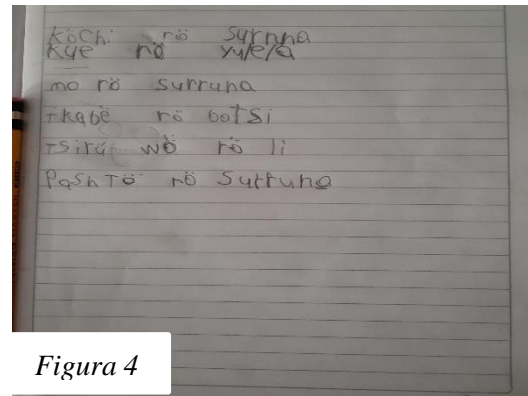 köchi rö surruna
kue rö yulela
mo rö surruna
tkabë rö botsi
tsirú wö rö li
PashTö rö surruna
Figura 4